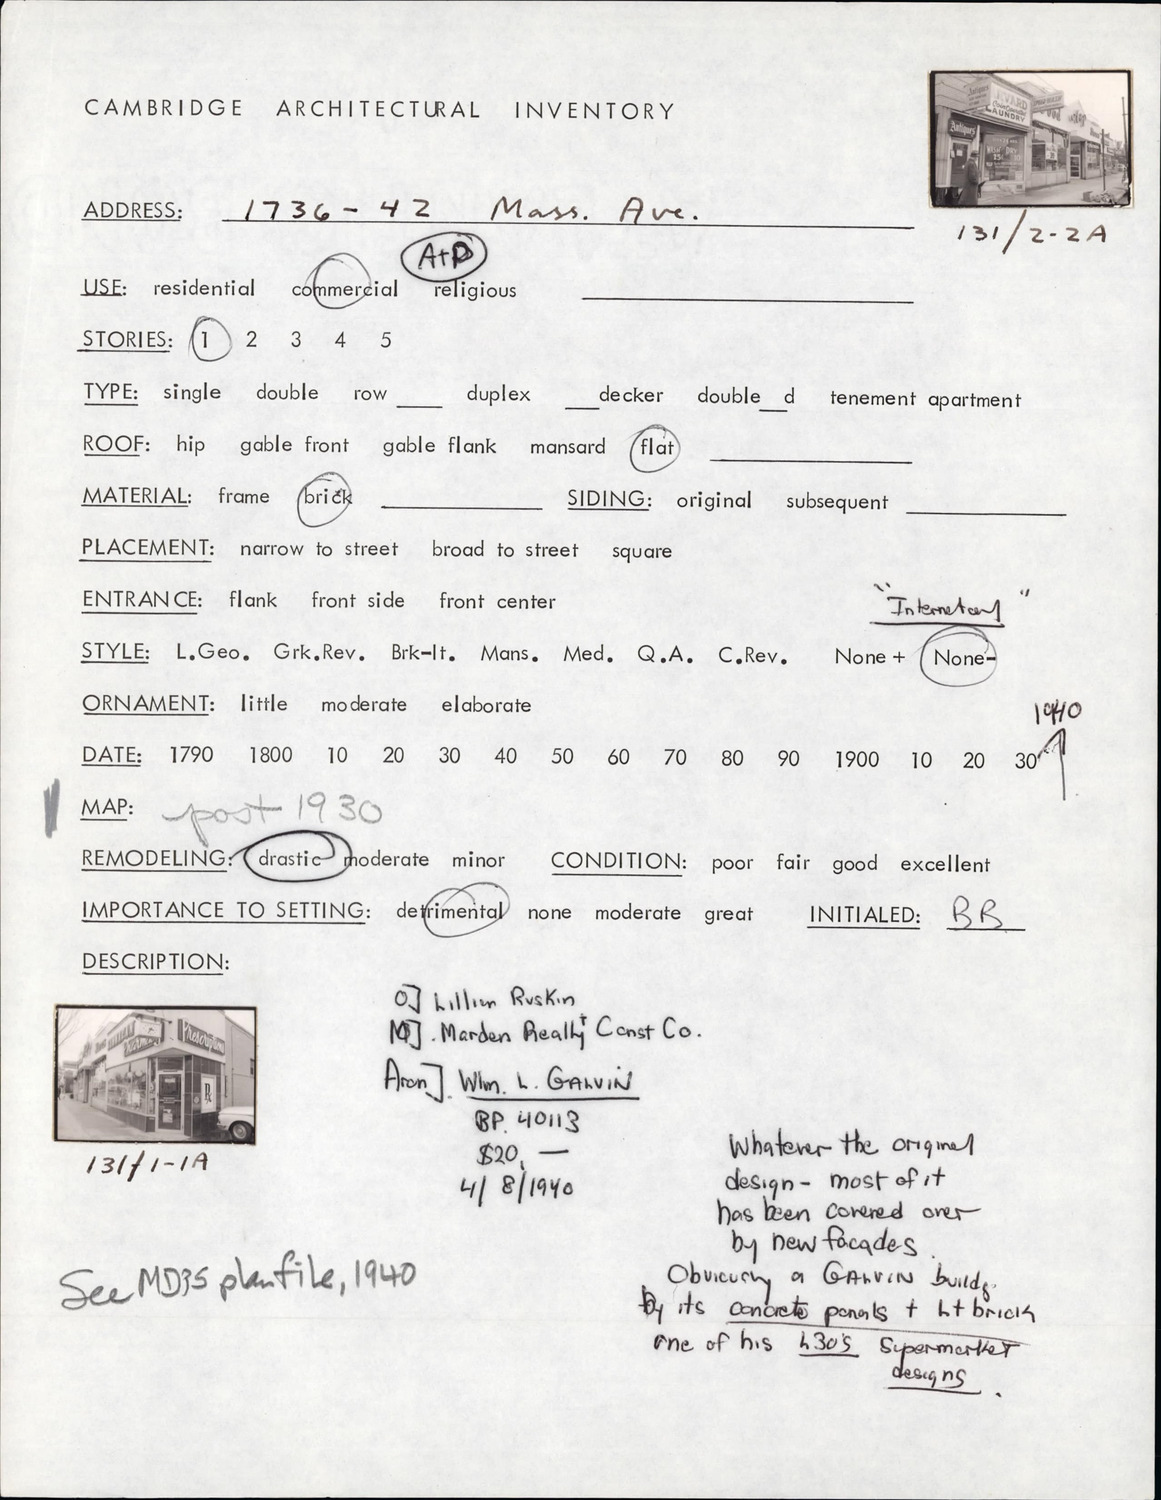 CAMBRIDGE ARCHITECTURAL INVENTORY
ADDRESS: 1736-42 Mass. Ave.
131/2-2A
A+P
USE: residential commercial religious
STORIES: 1 2 3 4 5
TYPE: single double row ___ duplex ___decker double__d tenement apartment
ROOF: hip gable front gable flank mansard flat
MATERIAL: frame brick SIDING: original subsequent
PLACEMENT: narrow to street broad to street square
ENTRANCE: flank front side front center
STYLE: L.Geo. Grk.Rev. Brk-It. Mans. Med. Q.A. C.Rev. None + None-
ORNAMENT: little moderate elaborate
1940
DATE: 1790 1800 10 20 30 40 50 60 70 80 90 1900 10 20 30
MAP: post 1930
REMODELING: drastic moderate minor CONDITION: poor fair good excellent
IMPORTANCE TO SETTING: detrimental none moderate great INITIALED: BB
DESCRIPTION:
O] Lillian Ruskin
M]. Marden Realty + Const Co.
Wlm. L. GALVIN
BP. 40113
$20, —
4/8/1940
131/1-1A
Whatever the original
design - most of it
has been covered over
by new facades.
Obviously a GALVIN buildg.
By its concrete panels + Lt brick
one of his L30's Supermarket
designs.
See MD35 planfile, 1940
LAUNDRY
Antiques
Prescriptions